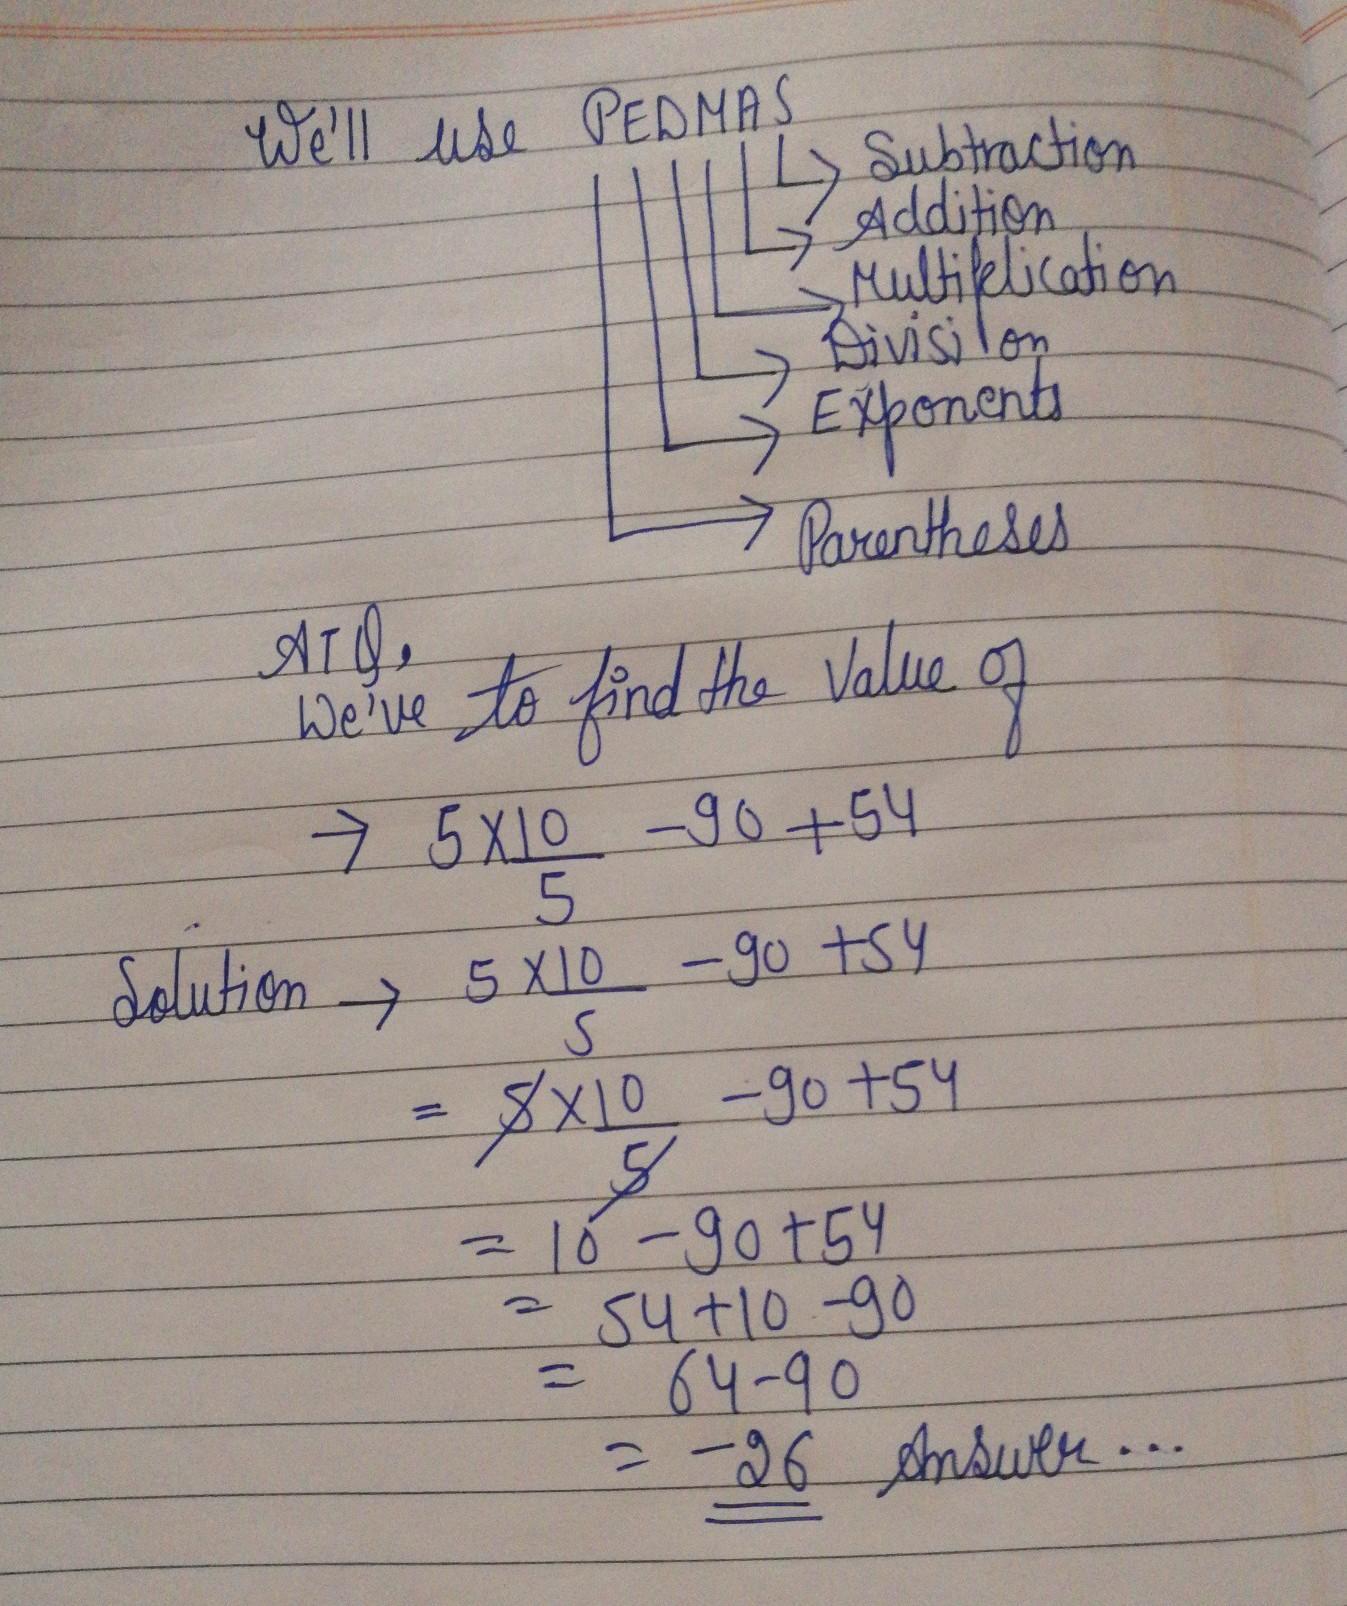 We'll use PEDMAS
Subtraction
Addition
Multiplication
Division
Exponents
Parentheses
ATQ,
We've to find the Value of
→ 5×10/5 -90 +54
Solution → 5×10/5 -90 +54
= 5×10/5 -90 +54
= 10 -90 +54
= 54+10 -90
= 64-90
= -26 Answer...